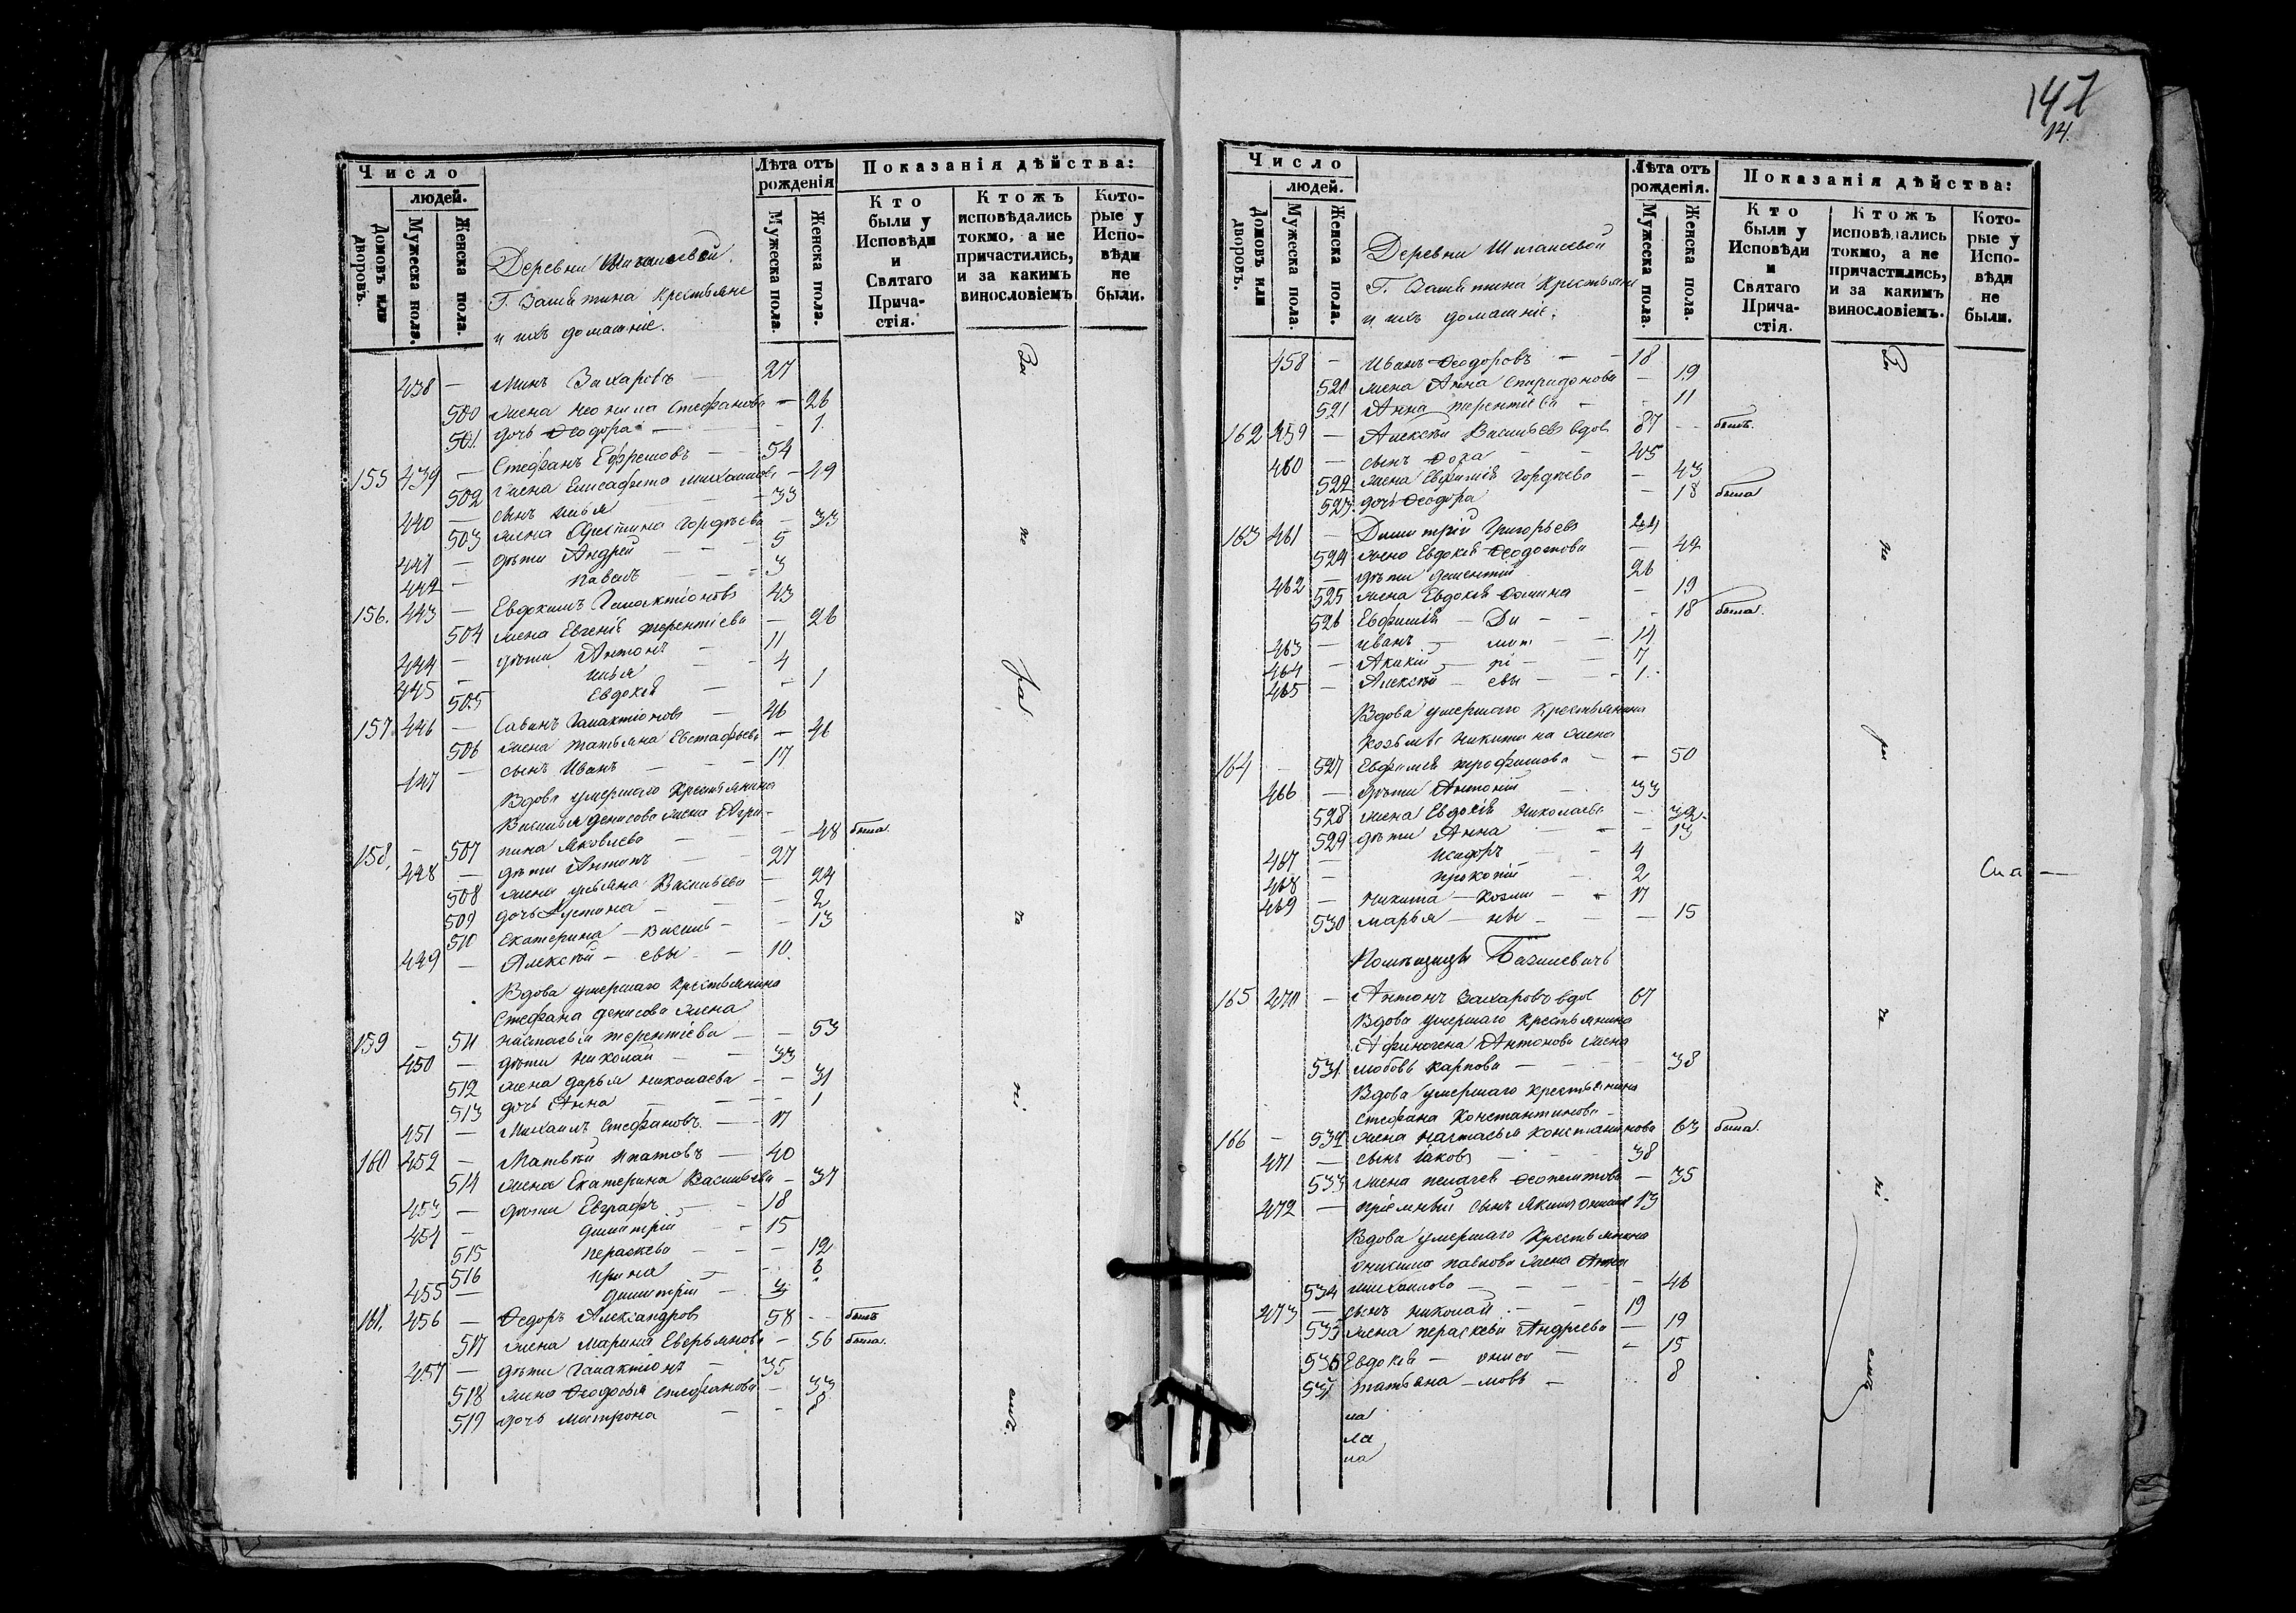 147
14.
Число
людей.
Домовъ или дворовъ.
Мужеска пола.
Женска пола.
Лѣта отъ рожденія
Мужеска пола.
Женска пола.
Показанія дѣйства:
Кто были у Исповѣди и Святаго Причастія.
Ктожъ исповѣдались токмо, а не причастились, и за какимъ винословіемъ
Которые у Исповѣди не были.
Деревни
Крестьяне
и ихъ домашніе.
438 — Минъ Захаровъ — 27
500 жена Неонила Стефанова — 26
501 дочь Ѳеодора — 1
155 439 — Стефанъ Ефремовъ — 54
502 жена Елисафета Михаилова — 49
440 — сынъ Илья — 33
503 жена Гордѣева — 33
441 — дѣти Андрей — 5
442 — Павелъ — 3
156. 443 — Евдокимъ Галактіоновъ 43
504 жена Евгенія Терентіева — 26
444 — дѣти Антонъ — 11
445 — Илья — 4
505 Евдокія — 1
157 446 — Савинъ Галактіоновъ — 46
506 жена Татьяна Евстафьева — 46
447 — сынъ Иванъ — 17
Вдова умершаго крестьянина
Василія Денисова жена Агри-
158. — 507 пина Яковлева — 48 была.
448 — дѣти Антипъ — 27
508 жена Ульяна Васильева — 24
509 дочь Устина — 2
510 Екатерина — Василь — 13
449 — Алексѣй — евы — 10.
Вдова умершаго крестьянина
Стефана Денисова жена
159 — 511 Настасья Терентіева — 53
450 — дѣти Николай — 33
512 жена Дарья Николаева — 31
513 дочь Анна — 1
451 — Михаилъ Стефановъ. — 17
160 452 — Матвѣй Ипатовъ — 40
514 жена Екатерина Васильева — 37
453 — дѣти Евграфъ — 18
454 — Димитрій — 15
515 Параскева — 12
516 Ирина — 6
455 — Димитрій — 3
161. 456 — Ѳедоръ Александровъ 58 — былъ
517 жена Марина Аверьянова — 56 была.
457 — дѣти Галактіонъ — 35
518 жена Ѳеодосья Стефанова — 33
519 дочь Матрона — 8
Число
людей.
Домовъ или дворовъ.
Мужеска пола.
Женска пола.
Лѣта отъ рожденія.
Мужеска пола.
Женска пола.
Показанія дѣйства:
Кто были у Исповѣди и Святаго Причастія.
Ктожъ исповѣдались токмо, а не причастились, и за какимъ винословіемъ.
Которые у Исповѣди не были.
Деревни
Крестьяне
и ихъ домашніе.
458 — Иванъ Ѳеодоровъ — 18
520 жена Анна Спиридонова — 19
521 Анна Терентіева — 11
162 459 — Алексѣй Васильевъ вдов 87 — былъ.
460 — сынъ Ѳома — 45
522 жена Евфимія Гордѣева — 43
523 дочь Ѳеодора — 18 была
163 461 — Димитрій Григорьевъ 44
524 жена Евдокія Ѳеодотова — 42
462 — дѣти Дементій 26
525 жена Евдокія Ѳомина — 19
526 Евфимія — Ди — 18 была.
463 — Иванъ — мит — 14
464 — Акакій — рі — 7
465 — Алексѣй — евы — 1
Вдова умершаго крестьянина
Козьмы Никитина жена
164 — 527 Евфимія Трофимова — 50
466 — дѣти Антоній — 33
528 жена Евдокія Николаева — 32
529 дѣти Анна — 13
467 — Исидоръ — 4
468 — Прокопій — 2
469 — Никита — Козми — 17
530 Марья — ны — 15
Помѣщицы
165 470 — Антонъ Захаровъ вдов 67
Вдова умершаго крестьянина
Афиногена Антонова жена
531 Любовь Карпова — 38
Вдова умершаго крестьянина
Стефана Константинова
166 — 532 жена Настасья Константинова 63 была.
471 — сынъ Іаковъ — 38
533 жена Пелагея — 35
472 — пріемный сынъ 13
Вдова умершаго крестьянина
Онисима Павлова жена Анна
534 Михаилова — 46
473 — сынъ Николай — 19
535 жена Параскева Андреева — 19
536 Евдокія — Ониси — 15
537 Татьяна — мовы — 8